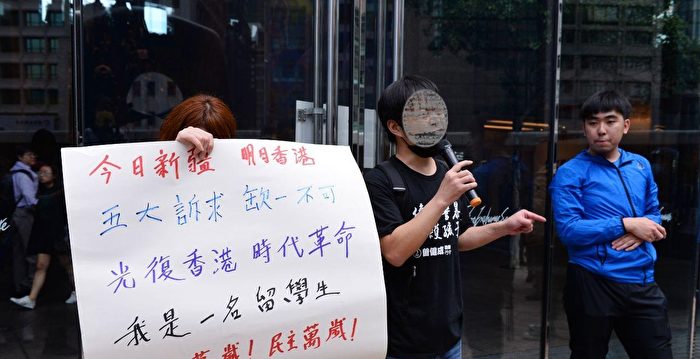 今日新疆 明日香港
五大訴求 缺一不可
光復香港 時代革命
我是一名留學生
萬歲！民主萬歲！